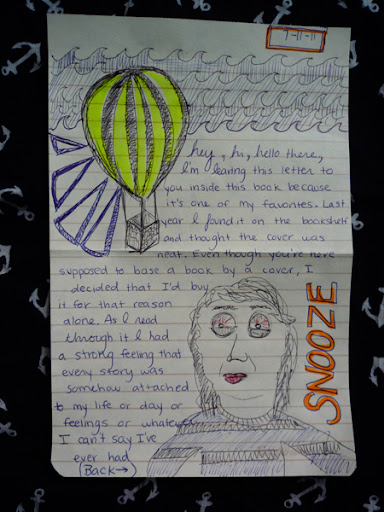 7-11-11
hey, hi, hello there,
I'm leaving this letter to
you inside this book because
it's one of my favorites. Last
year I found it on the bookshelf
and thought the cover was
neat. Even though you're never
supposed to base a book by a cover, I
decided that I'd buy
it for that reason
alone. As I read
through it I had
a strong feeling that
every story was
somehow attached
to my life or day or
feelings or whatever
I can't say I've
ever had
(Back→)
SNOOZE